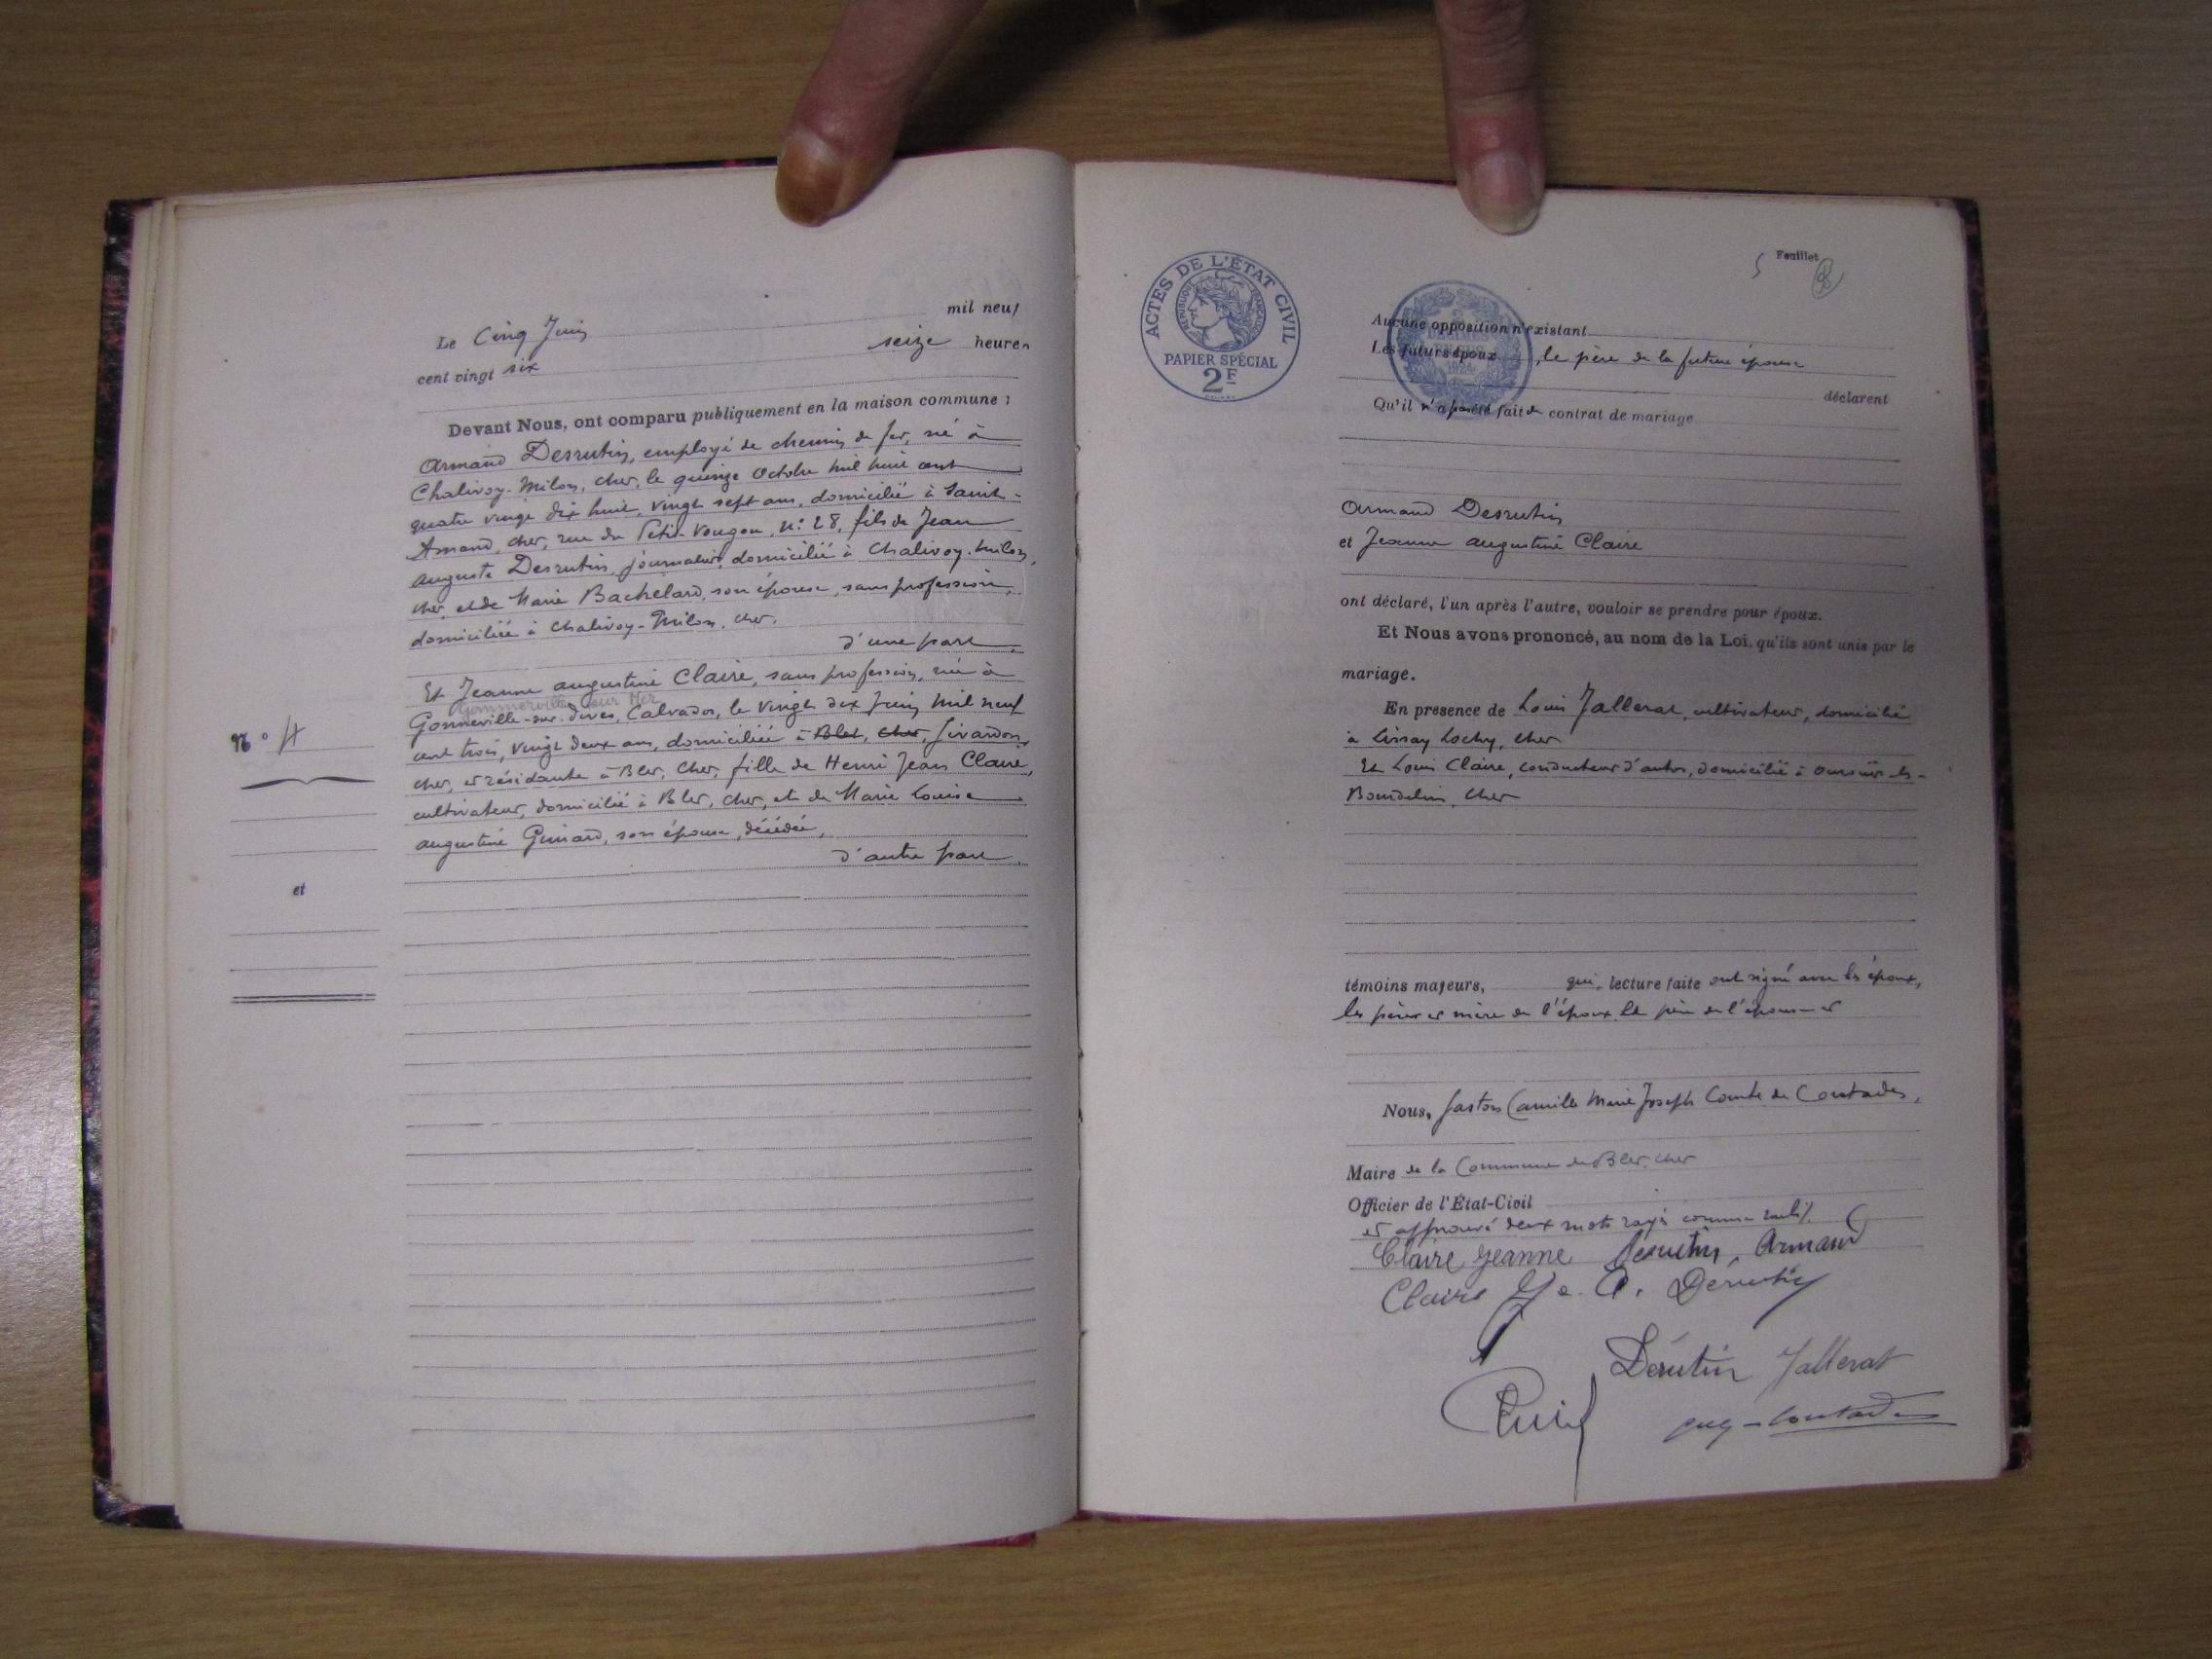 mil neuf
Le Cinq Juin
seize heures
cent vingt six
Devant Nous, ont comparu publiquement en la maison commune :
Armand Desrutin, employé de chemin de fer, né à
Chalivoy-Milon, Cher, le quinze Octobre mil huit cent
quatre vingt dix huit, vingt sept ans, domicilié à Saint-
Amand, Cher, rue du Petit-Vougon, n: 28, fils de Jean
Auguste Desrutin, journalier, domicilié à Chalivoy-Milon,
Cher, et de Marie Bachelard, son épouse, sans profession,
domiciliée à Chalivoy-Milon, Cher.
d'une part
Et Jeanne Augustine Claire, sans profession, née à
Gommerville sur Mer
Gonneville-sur-Dives, Calvados, le vingt dix Juin mil neuf
cent trois, vingt deux ans, domiciliée à Blet, Cher, Givardon,
N° 4
Cher, et résidante à Blet, Cher, fille de Henri Jean Claire,
cultivateur, domicilié à Blet, Cher, et de Marie Louise
Augustine Guinard, son épouse, décédée,
d'autre part.
et
Feuillet
5
ACTES DE L'ÉTAT CIVIL
RÉPUBLIQUE FRANÇAISE
PAPIER SPÉCIAL
2F
Aucune opposition n'existant
Les futurs époux, le père de la future épouse
déclarent
Qu'il n'a pas été fait de contrat de mariage
Armand Desrutin
et Jeanne Augustine Claire
ont déclaré, l'un après l'autre, vouloir se prendre pour époux.
Et Nous avons prononcé, au nom de la Loi, qu'ils sont unis par le
mariage.
En présence de Louis Jallerat, cultivateur, domicilié
à Lissay Lochy, Cher
Et Louis Claire, conducteur d'autos, domicilié à Ourouër-les-
Bourdelins, Cher
témoins majeurs, qui, lecture faite ont signé avec les époux,
les père et mère de l'époux, le père de l'épouse et
Nous, Gaston Camille Marie Joseph Comte de Contades,
Maire de la Commune de Blet, Cher
Officier de l'État-Civil
et approuvé deux mots rayés comme nuls.
Claire Jeanne Desrutin Armand
Claire Désrutin
Dérutin Jallerat
Contades